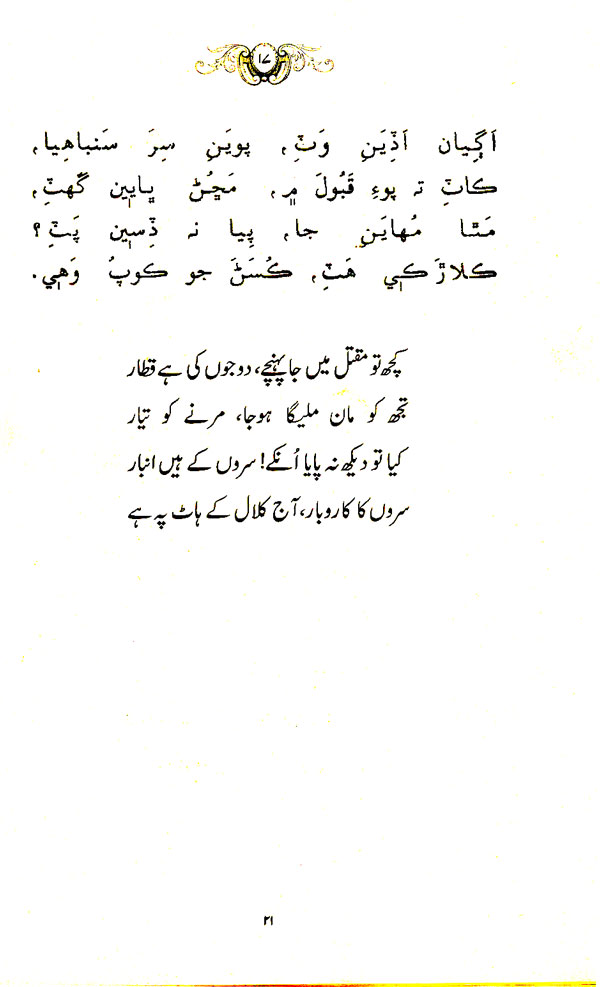 ١٧
اَڳِيان اَڏِيَنِ وَٽِ، پويَنِ سِرَ سَنباهِيا،
ڪاٽِ تہ پوءِ قَبُولَ ۾، مَڇُڻ ڀايين گهٽِ،
مَٿا مُهايَنِ جا، پِيا نہ ڏِسِين پَٽِ؟
ڪلاڙَ ڪي هَٽِ، ڪُسَڻَ جو ڪوپُ وَهي.
کچھ تو مقتل میں جا پہنچے، دوجوں کی ہے قطار
تجھ کو مان ملیگا ہوجا، مرنے کو تیّار
کیا تو دیکھ نہ پایا اُنکے! سروں کے ہیں انبار
سروں کا کاروبار، آج کلال کے ہاٹ پہ ہے
٢١